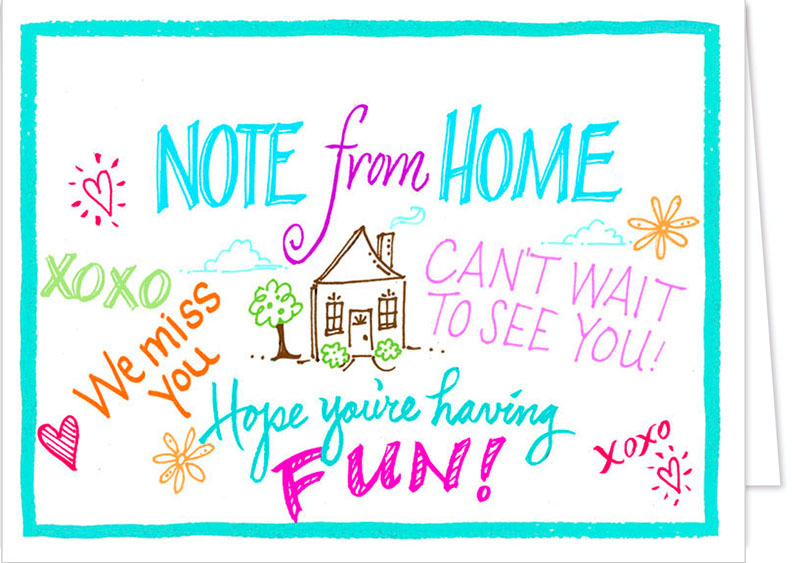 NOTE from HOME
XOXO
We miss
you
CAN'T WAIT
TO SEE YOU!
Hope you're having
FUN!
XOXO